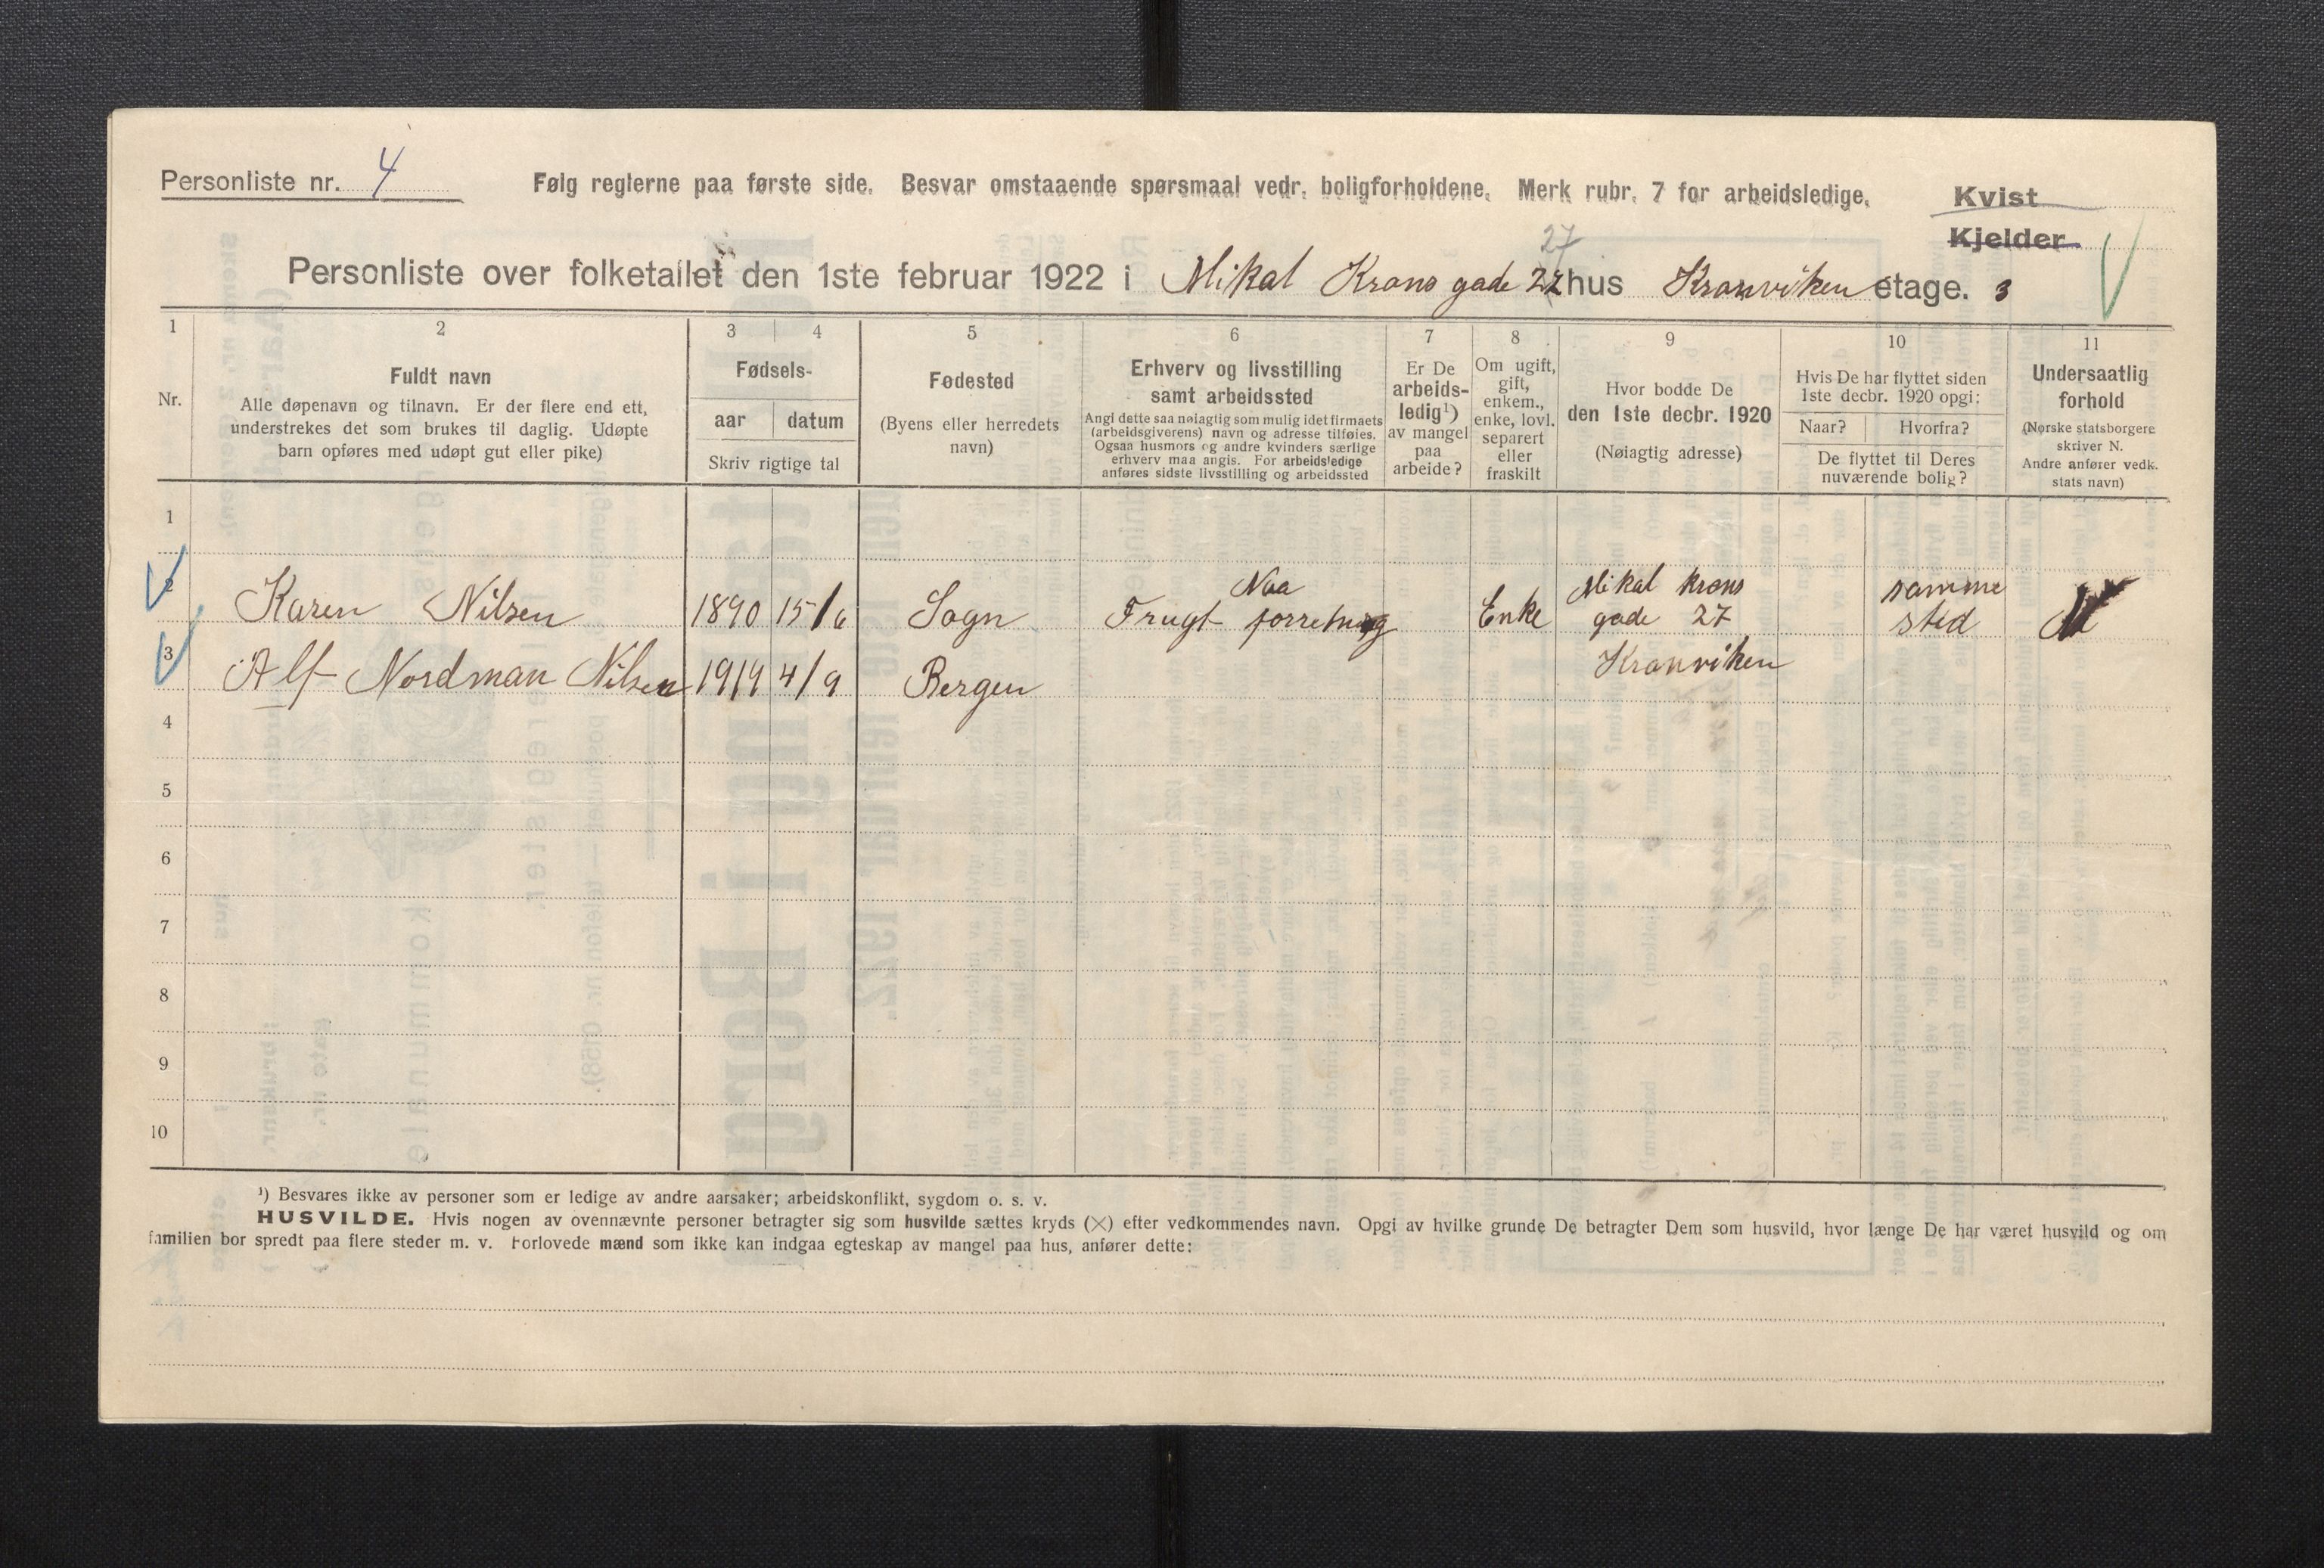 Personliste nr. 4
Følg reglerne paa første side. Besvar omstaaende spørsmaal vedr. boligforholdene. Merk rubr. 7 for arbeidsledige.
Kvist
Kjelder
27
Personliste over folketallet den 1ste februar 1922 i Mikal Krons gade 27 hus Kronviken etage. 3
1 2 3 4 5 6 7 8 9 10 11
Nr.
Fuldt navn
Alle døpenavn og tilnavn. Er der flere end ett,
understrekes det som brukes til daglig. Udøpte
barn opføres med udøpt gut eller pike)
Fødsels-
aar datum
Skriv rigtige tal
Fødested
(Byens eller herredets
navn)
Erhverv og livsstilling
samt arbeidssted
Angi dette saa nøiagtig som mulig idet firmaets
(arbeidsgiverens) navn og adresse tilføies.
Ogsaa husmors og andre kvinders særlige
erhverv maa angis. For arbeidsledige
anføres sidste livsstilling og arbeidssted
Er De
arbeids-
ledig¹)
av mangel
paa
arbeide?
Om ugift,
gift,
enkem.,
enke, lovl.
separert
eller
fraskilt
Hvor bodde De
den 1ste decbr. 1920
(Nøiagtig adresse)
Hvis De har flyttet siden
1ste decbr. 1920 opgi:
Naar? Hvorfra?
De flyttet til Deres
nuværende bolig?
Undersaatlig
forhold
(Norske statsborgere
skriver N.
Andre anfører vedk.
stats navn)
1
2 Karen Nilsen 1890 15/6 Sogn Frugt forretning Enke Mikal Krons gade 27 samme sted
3 Alf Nordman Nilsen 1919 4/9 Bergen Kronviken
4
5
6
7
8
9
10
¹) Besvares ikke av personer som er ledige av andre aarsaker; arbeidskonflikt, sygdom o. s. v.
HUSVILDE. Hvis nogen av ovennævnte personer betragter sig som husvilde sættes kryds (×) efter vedkommendes navn. Opgi av hvilke grunde De betragter Dem som husvild, hvor længe De har været husvild og om
familien bor spredt paa flere steder m. v. Forlovede mænd som ikke kan indgaa egteskap av mangel paa hus, anfører dette: